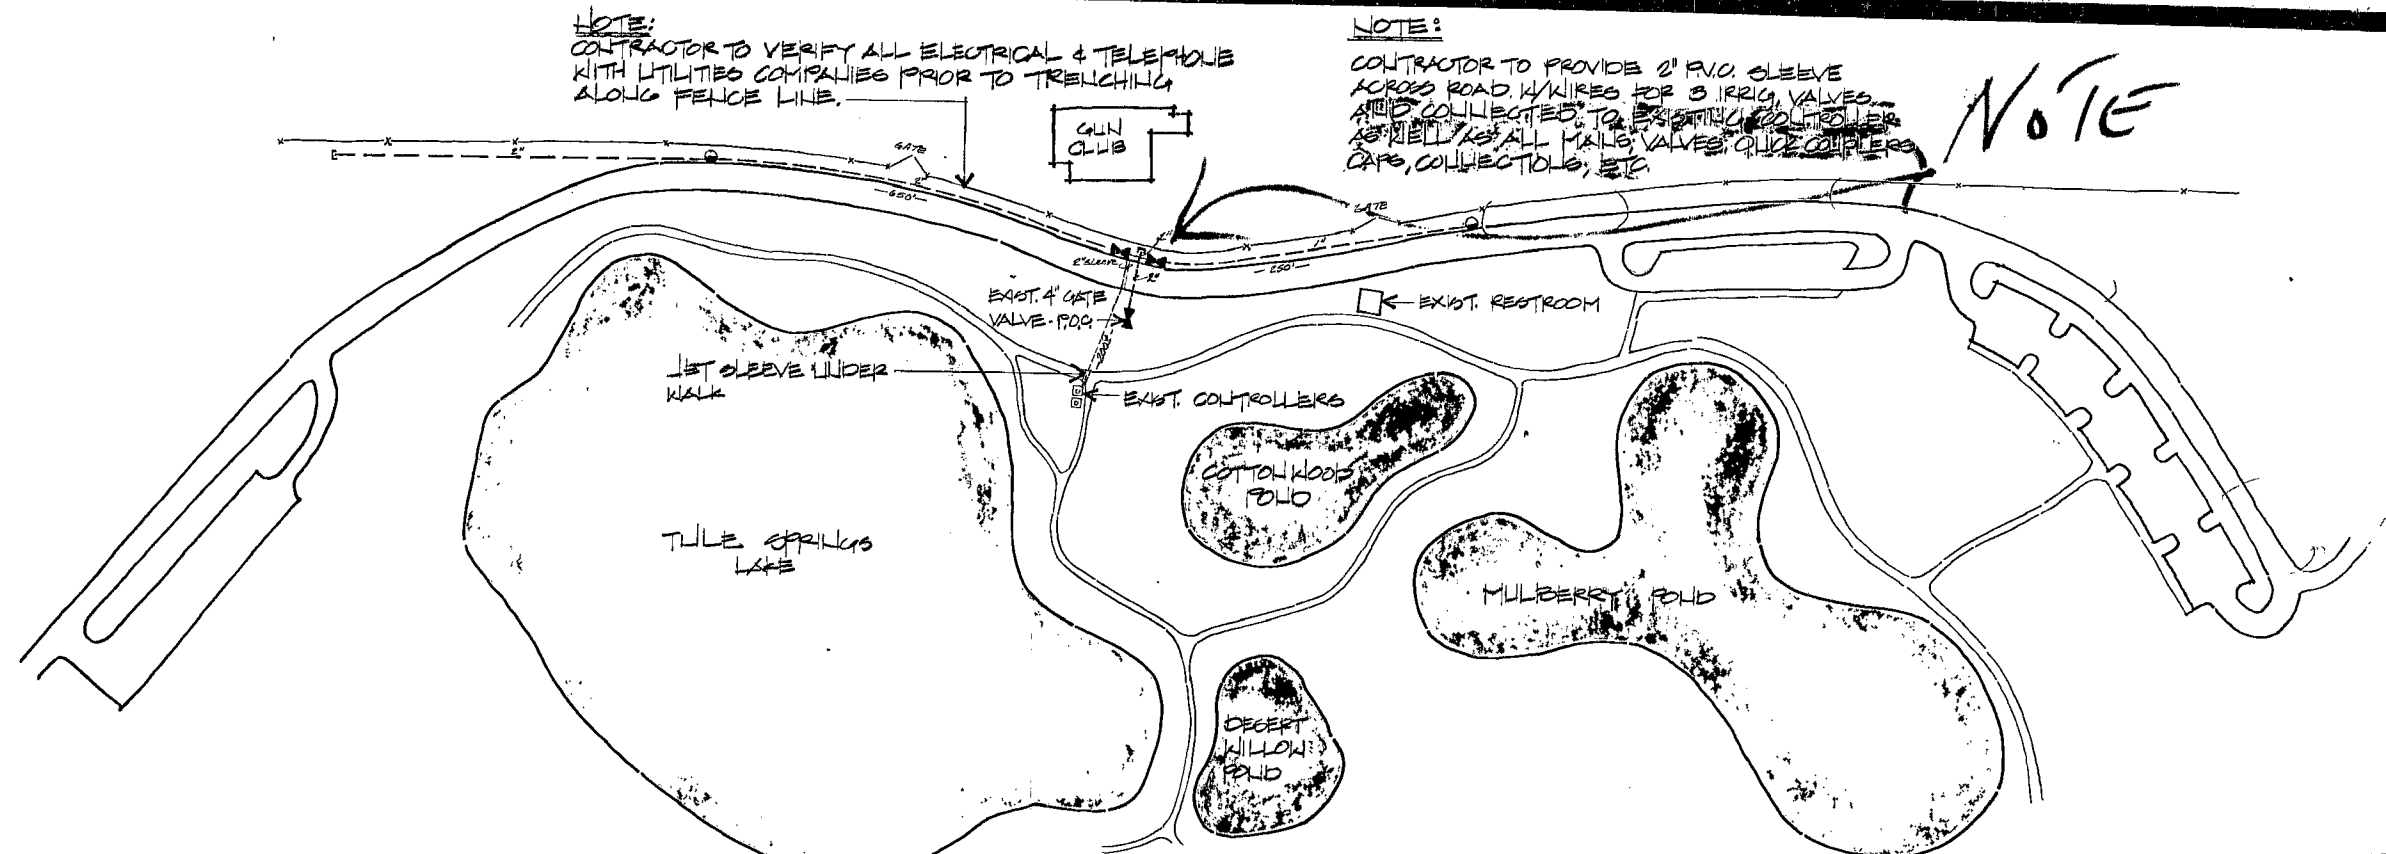 NOTE:
CONTRACTOR TO VERIFY ALL ELECTRICAL & TELEPHONE
WITH UTILITIES COMPANIES PRIOR TO TRENCHING
ALONG FENCE LINE.
NOTE:
CONTRACTOR TO PROVIDE 2" P.V.C. SLEEVE
ACROSS ROAD. W/WIRES FOR 3 IRRIG. VALVES
AND CONNECTED TO EXISTING CONTROLLER
AS WELL AS ALL MAINS, VALVES, QUICK COUPLERS,
CAPS, CONNECTIONS, ETC.
NOTE
GUN
CLUB
GATE
2"
2"
650'
GATE
1"
250'
2" SLEEVE
2"
EXIST. 4" GATE
VALVE - P.O.C.
EXIST. RESTROOM
JET SLEEVE UNDER
WALK
EXIST. CONTROLLERS
COTTONWOOD
POND
TULE SPRINGS
LAKE
MULBERRY POND
DESERT
WILLOW
POND